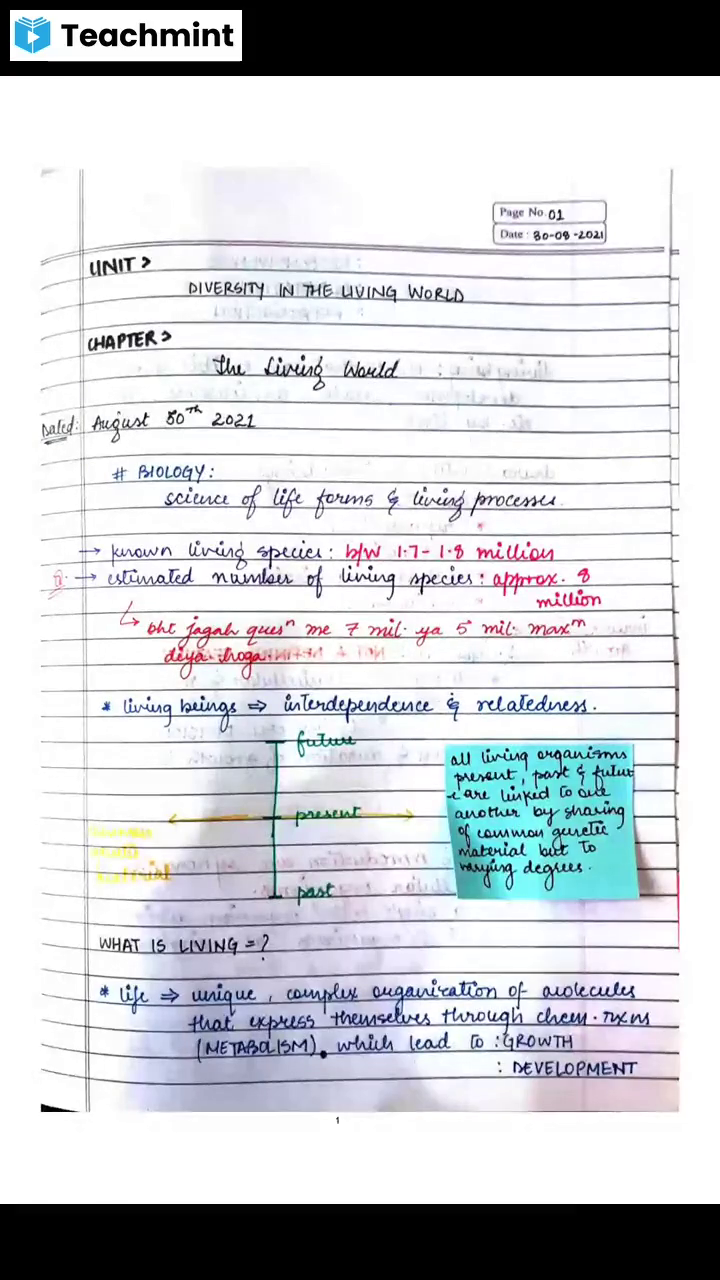 Teachmint
Page No. 01
Date : 30-08-2021
UNIT >
DIVERSITY IN THE LIVING WORLD
CHAPTER >
The Living World
Dated: August 30th 2021
# BIOLOGY:
science of life forms & living processes.
→ known living species: b/w 1.7 - 1.8 million
→ estimated number of living species: approx. 8
million
↳ bht jagah quesn me 7 mil. ya 5 mil. maxm
diya hoga.
* living beings ⇒ interdependence & relatedness.
future
present
past
all living organisms
present, past & futur
e are linked to one
another by sharing
of common genetic
material but to
varying degrees.
WHAT IS LIVING = ?
* life ⇒ unique, complex organization of molecules
that express themselves through chem. rxns
(METABOLISM). which lead to : GROWTH
: DEVELOPMENT
1